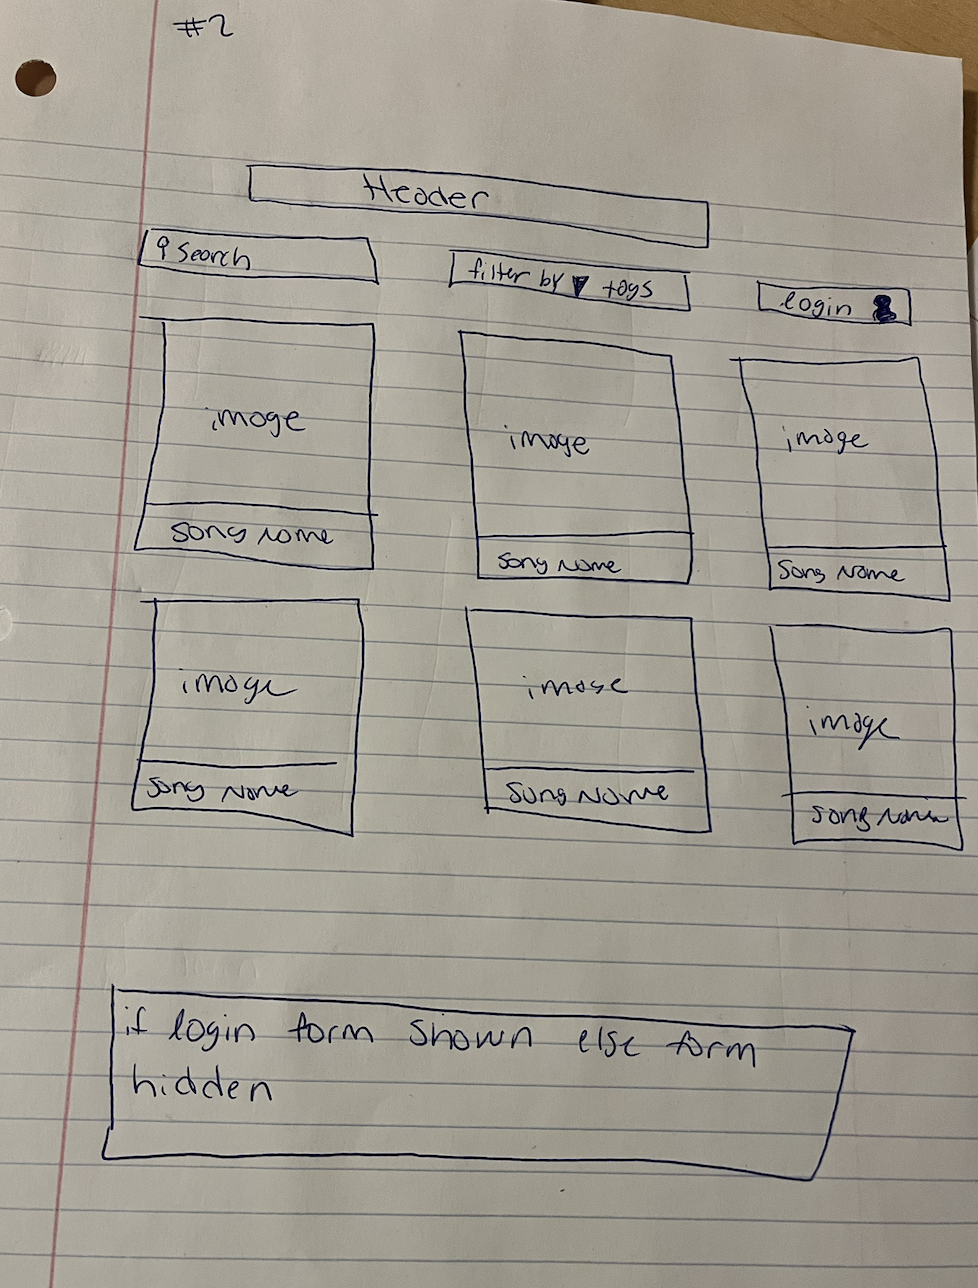 #2
Header
Search
filter by tags
login
image
image
image
song name
song name
song name
image
image
image
song name
song name
song name
if login form shown else form
hidden